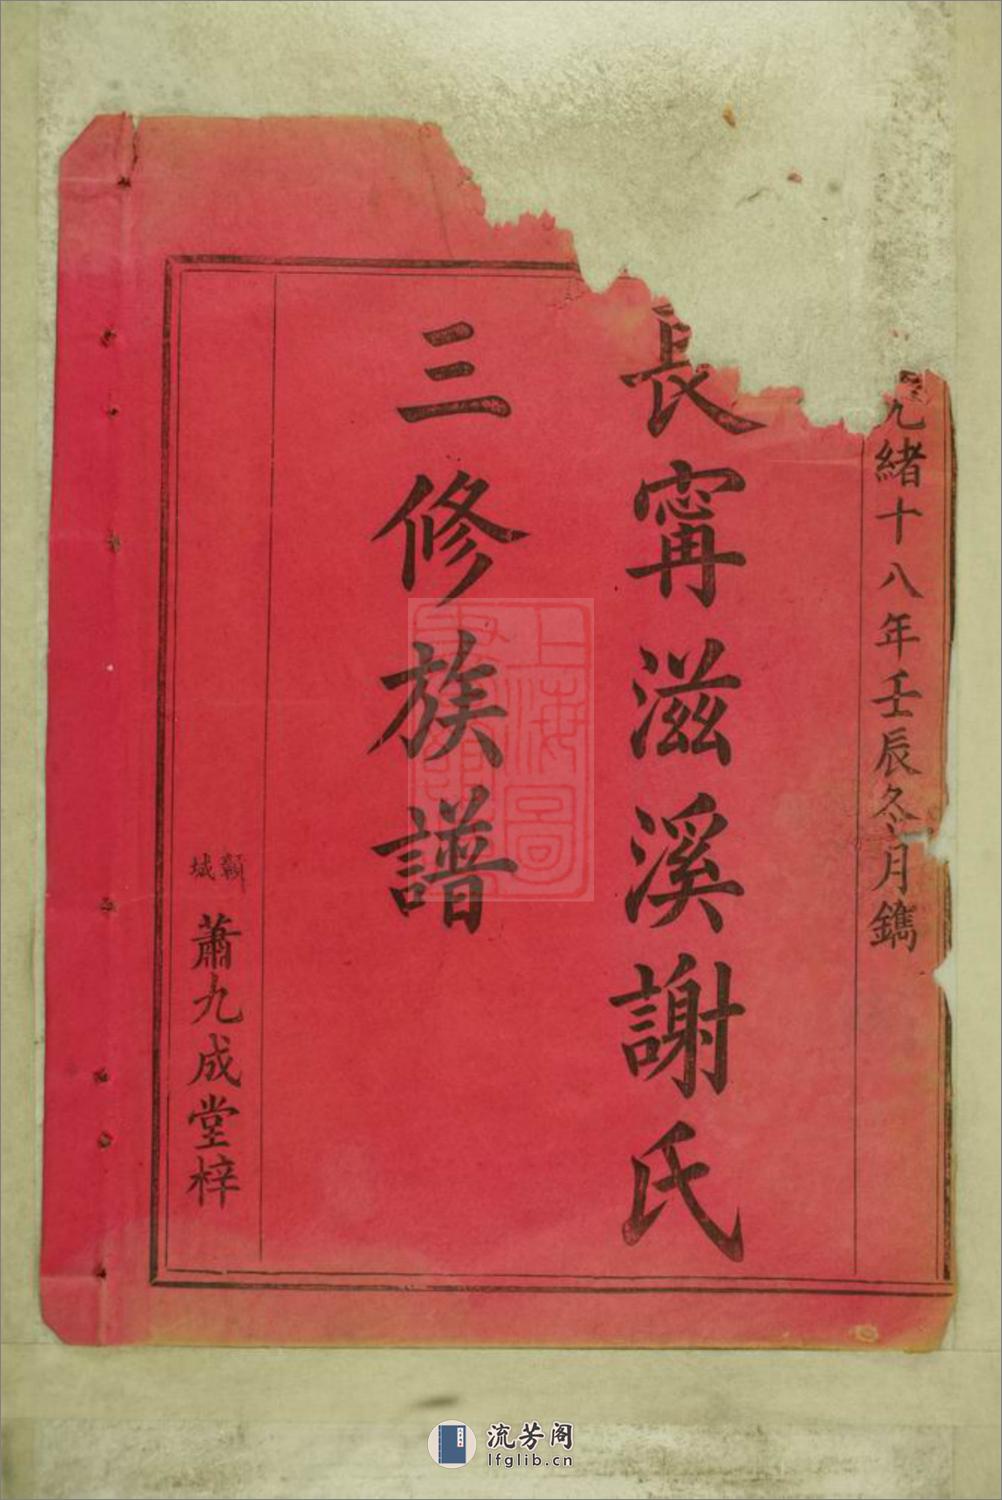 光緒十八年壬辰冬月鐫
長甯滋溪謝氏
三修族譜
贛城
蕭九成堂梓
上海圖
流芳阁
lfglib.cn